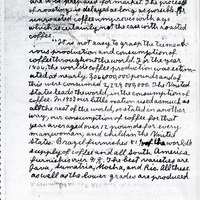 are not prepared for market. The process
of roasting is delayed as long as possible, for
unroasted coffee improves with age
which certainly not the case with roasted
coffee.
"It is not easy to grasp the tremend-
ous production and consumption of
coffee throughout the world. For the year
the world's coffee production was estim-
ated at nearly 3,000,000,000 pounds and of
this were consumed 2,229,000,000. The United
States leads the world in the consumption of
coffee. In 1920 our little nation used as much as
all the rest of the world, or stated in another
way, our consumption of coffee for that
year averaged over 12 pounds for every
man, woman, and child in the United
States. Brazil furnishes of the world's
supply of coffee and all South America
furnishes over The best varieties are
Java, Sumatra, Mocha, and Rio. All these
as well as the lower grades are produced